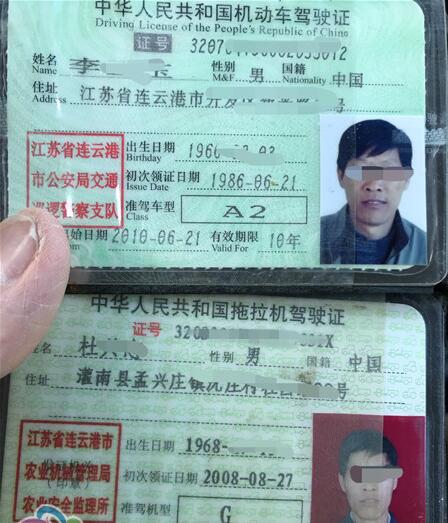 中华人民共和国机动车驾驶证
Driving License of the People's Republic of China
证号 3207
姓名 Name 李 玉 性别 M&F 男 国籍 Nationality 中国
住址 Address 江苏省连云港市 号
江苏省连云港
市公安局交通
巡逻警察支队
出生日期 Birthday 1966-
初次领证日期 Issue Date 1986-06-21
准驾车型 Class A2
起始日期 2010-06-21 有效期限 Valid For 10年
中华人民共和国拖拉机驾驶证
证号 320 X
姓名 杜 性别 男 国籍 中国
住址 灌南县孟兴庄镇 号
江苏省连云港市
农业机械管理局
农业安全监理所
出生日期 1968-
初次领证日期 2008-08-27
准驾机型 G